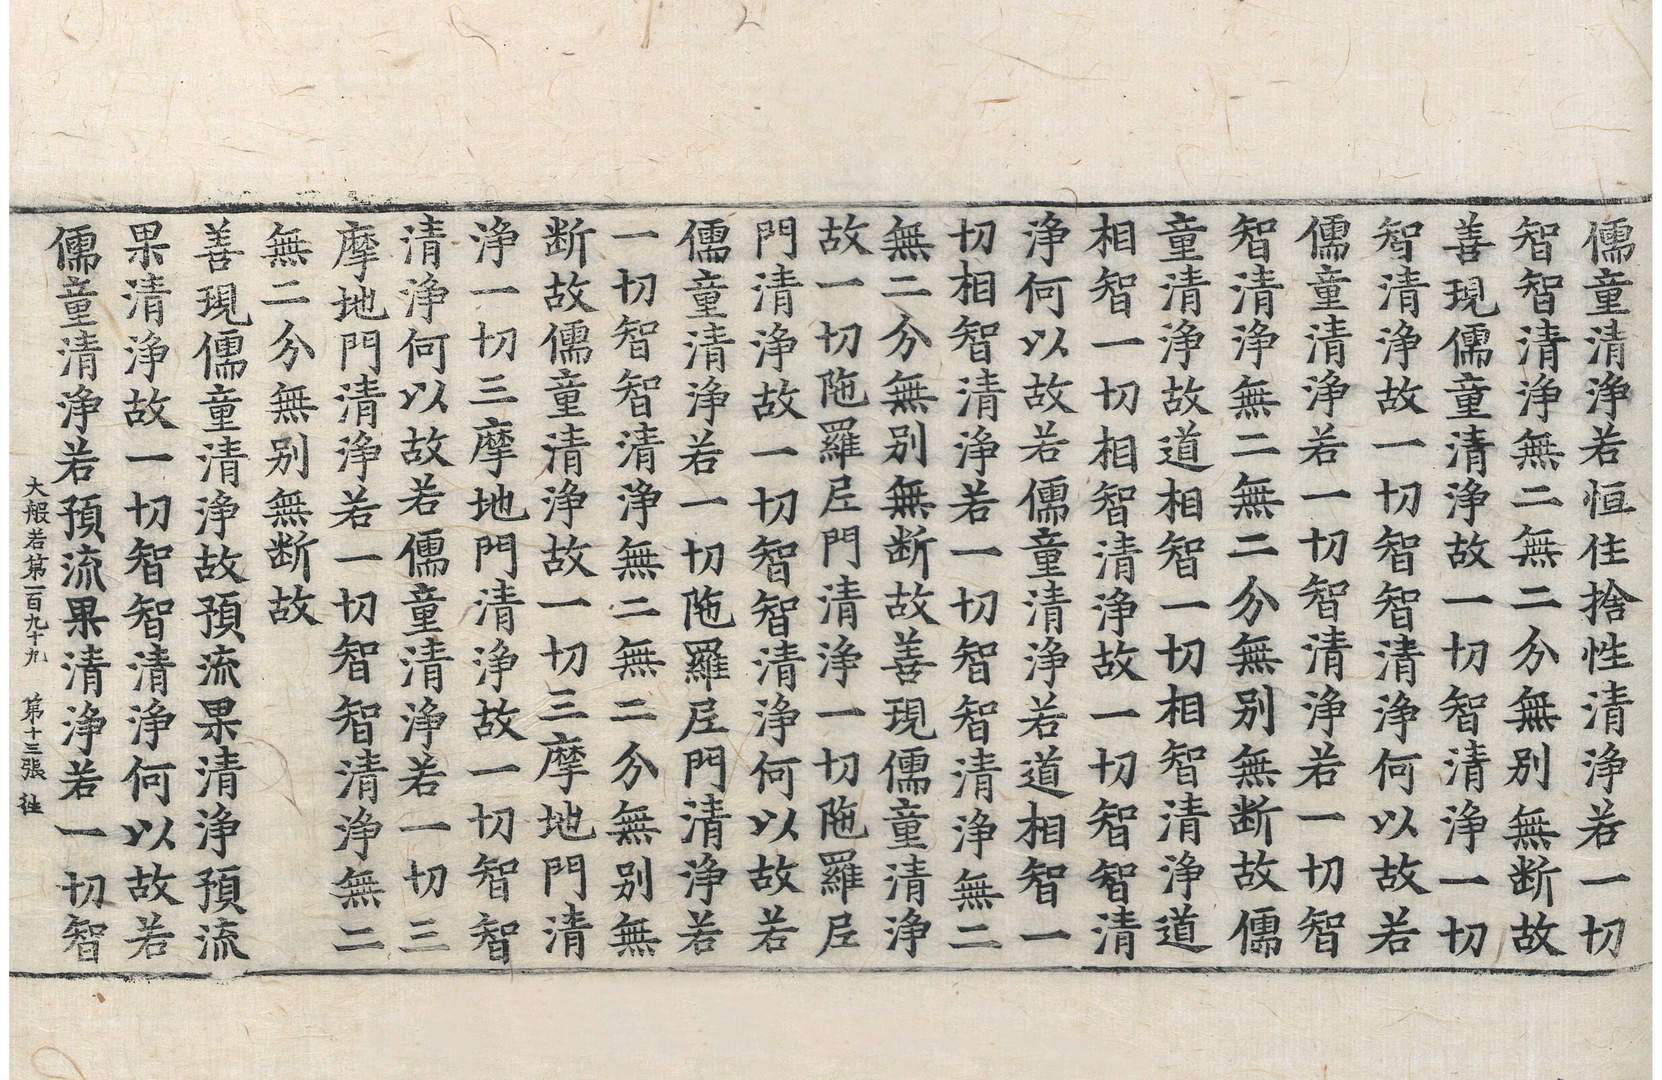 儒童清淨若恒住捨性清淨若一切
智智清淨無二無二分無別無断故
善現儒童清淨故一切智清淨一切
智清淨故一切智智清淨何以故若
儒童清淨若一切智清淨若一切智
智清淨無二無二分無別無断故儒
童清淨故道相智一切相智清淨道
相智一切相智清淨故一切智智清
淨何以故若儒童清淨若道相智一
切相智清淨若一切智智清淨無二
無二分無別無断故善現儒童清淨
故一切陁羅尼門清淨一切陁羅尼
門清淨故一切智智清淨何以故若
儒童清淨若一切陁羅尼門清淨若
一切智智清淨無二無二分無別無
断故儒童清淨故一切三摩地門清
淨一切三摩地門清淨故一切智智
清淨何以故若儒童清淨若一切三
摩地門清淨若一切智智清淨無二
無二分無別無断故
善現儒童清淨故預流果清淨預流
果清淨故一切智智清淨何以故若
儒童清淨若預流果清淨若一切智
大般若第一百九十九 第十三張